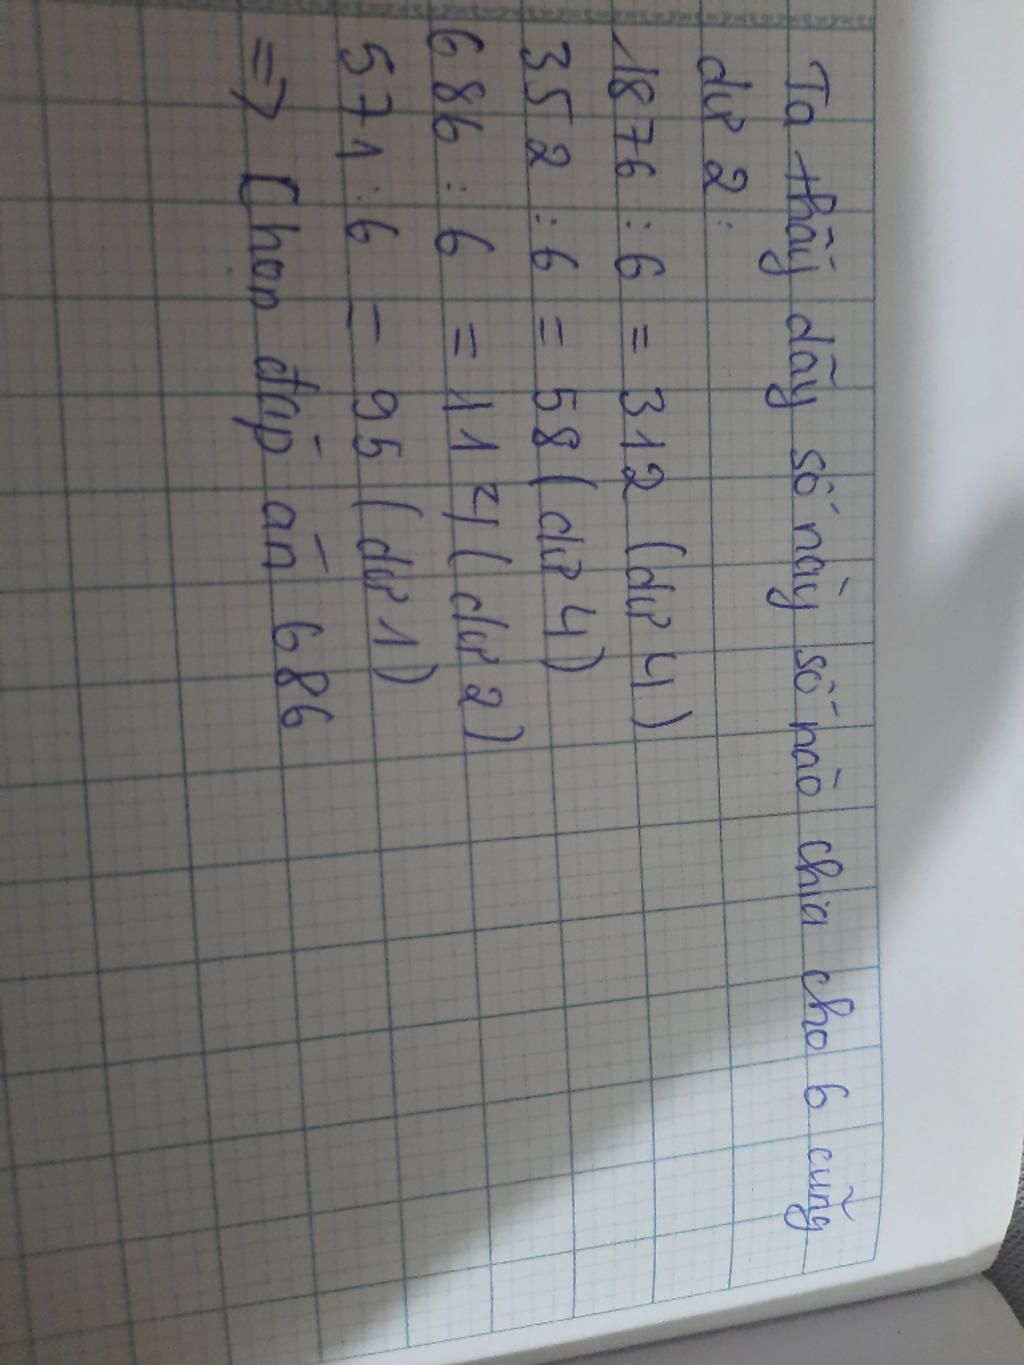 Ta thấy dãy số này số nào chia cho 6 cũng
dư 2:
1876 : 6 = 312 (dư 4)
352 : 6 = 58 (dư 4)
686 : 6 = 114 (dư 2)
571 : 6 = 95 (dư 1)
=> Chọn đáp án 686